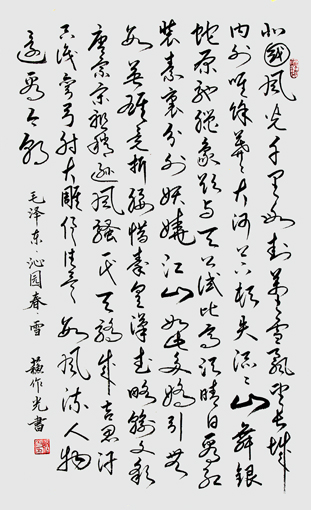 北國風光千里冰封萬里雪飘望长城
内外唯馀莽莽大河上下顿失滔滔山舞银
蛇原驰腊象欲与天公试比高须晴日看红
装素裹分外妖娆江山如此多娇引无
数英雄竞折腰惜秦皇漢武略输文彩
唐宗宋祖稍逊風骚一代天骄成吉思汗
只识弯弓射大雕俱往矣数風流人物
还看今朝
毛泽东·沁园春·雪 蘇作光書